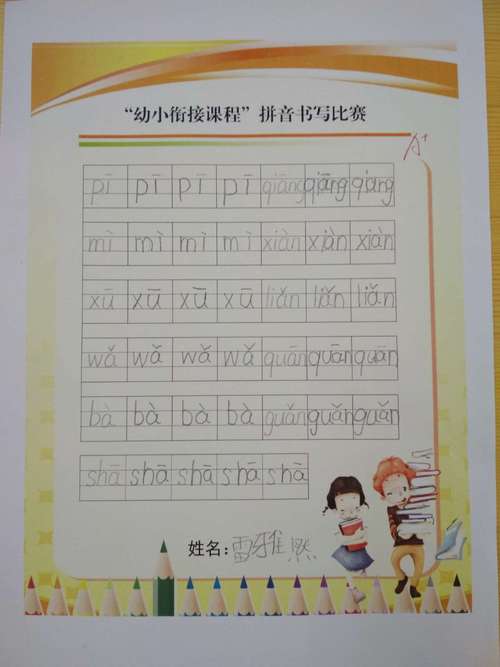 “幼小衔接课程”拼音书写比赛
A+
pī pī pī pī qiāng qiāng qiāng
mì mì mì mì xiàn xiàn xiàn
xū xū xū xū liǎn liǎn liǎn
wǎ wǎ wǎ wǎ quān quān quān
bà bà bà bà guǎn guǎn guǎn
shā shā shā shā shā
姓名：雷雅燃